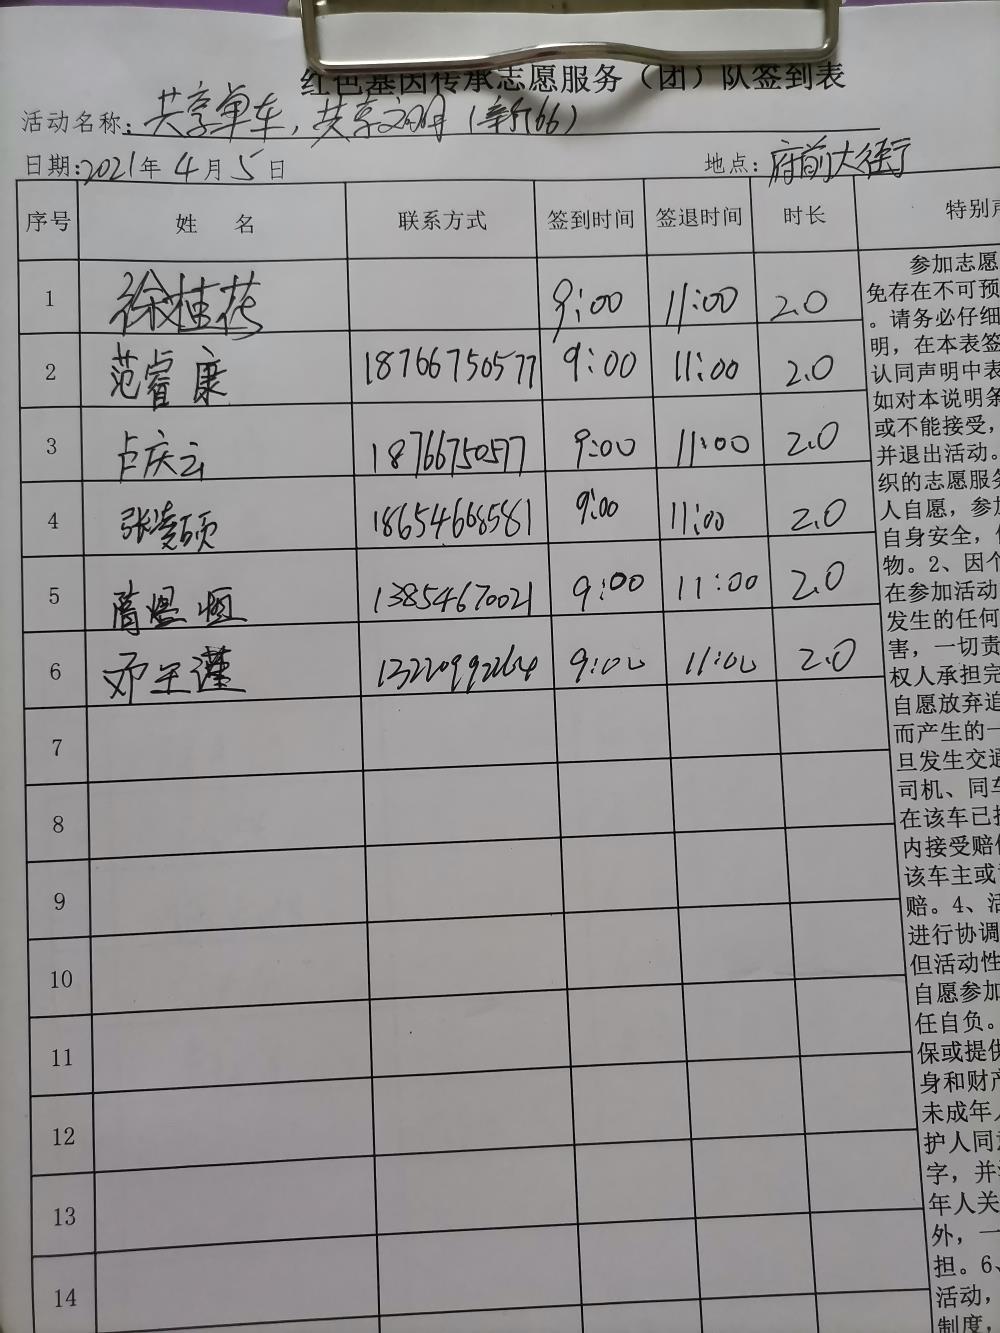 红色基因传承志愿服务（团）队签到表
活动名称：共享单车，共享文明（新66）
日期：2021年4月5日 地点：府前大街
序号 姓 名 联系方式 签到时间 签退时间 时长 特别声
1 徐桂花 9:00 11:00 2.0
2 范睿康 18766750577 9:00 11:00 2.0
3 卢庆云 18766750577 9:00 11:00 2.0
4 张凌硕 18654668581 9:00 11:00 2.0
5 13854670021 9:00 11:00 2.0
6 邓玉谨 13220992264 9:00 11:00 2.0
7
8
9
10
11
12
13
14
参加志愿
免存在不可预
。请务必仔细
明，在本表签
认同声明中表
如对本说明条
或不能接受，
并退出活动。
织的志愿服务
人自愿，参加
自身安全，
物。2、因个
在参加活动
发生的任何
害，一切责
权人承担完
自愿放弃追
而产生的一
旦发生交通
司机、同车
在该车已投
内接受赔偿
该车主或
赔。4、活
进行协调
但活动性
自愿参加
任自负。
保或提供
身和财产
未成年人
护人同意
字，并
年人关
外，一
担。6、
活动，
制度，